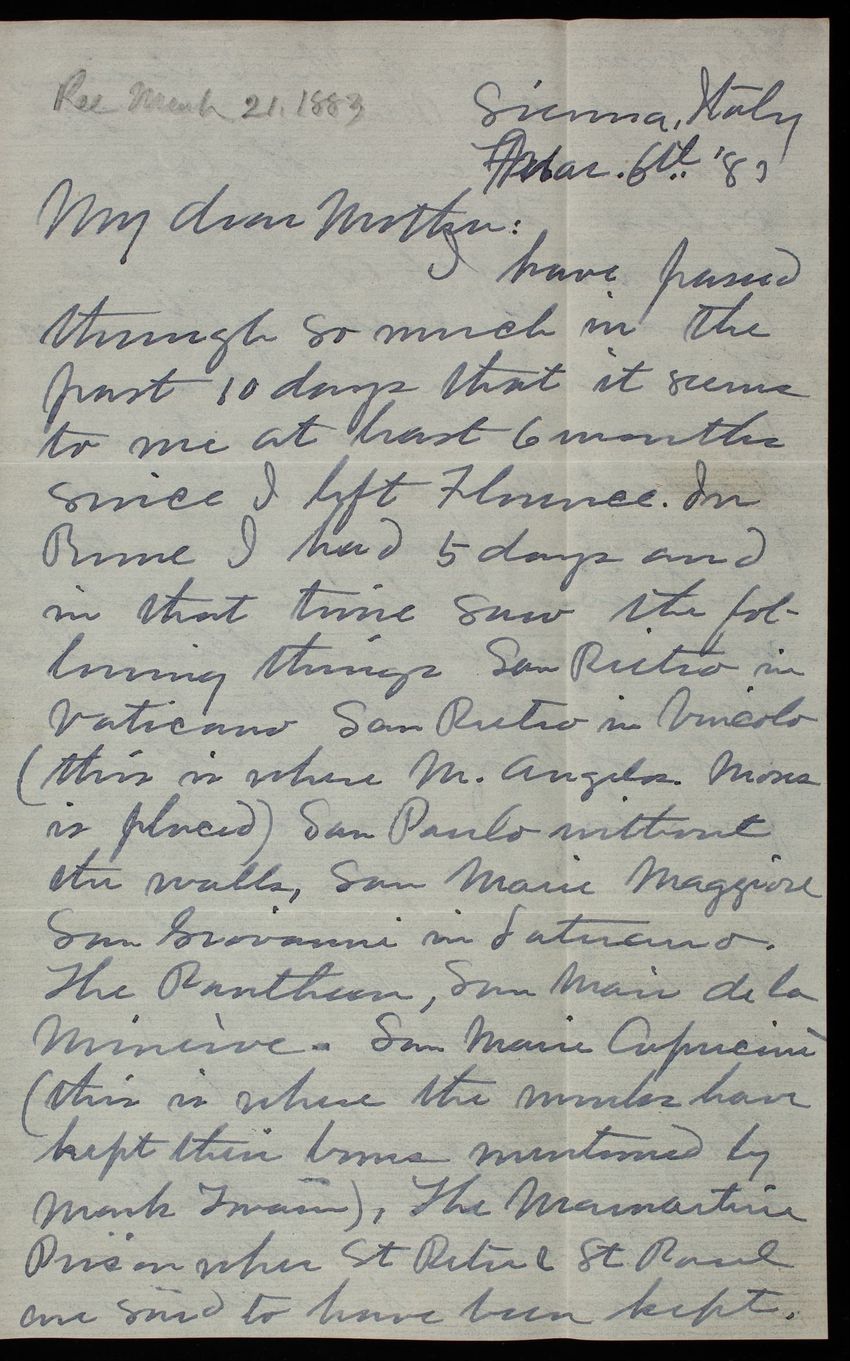 Rec March 21, 1883
Sienna, Italy
Mar. 6th '83
My dear Mother:
I have passed
through so much in the
past 10 days that it seems
to me at least 6 months
since I left Florence. In
Rome I had 5 days and
in that time saw the fol-
lowing things San Pietro in
Vaticano San Pietro in Vincolo
(this is where M. Angelos. Moses
is placed) San Paulo without
the walls, San Marie Maggiore
San Giovanni in Laterano.
The Pantheon, San Marie de la
Minerve. San Marie Capucini
(this is where the monks have
kept their bones mentioned by
Mark Twain), The Mamartine
Prison where St Peter & St Paul
are said to have been kept.